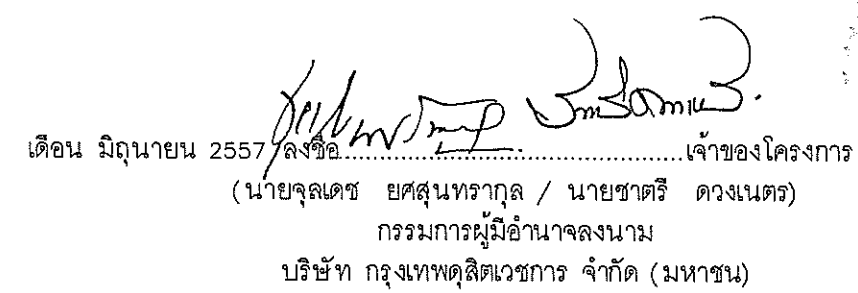 เดือน มิถุนายน 2557 ลงชื่อ.......................................................เจ้าของโครงการ
(นายจุลเดช ยศสุนทรากุล / นายชาตรี ดวงเนตร)
กรรมการผู้มีอำนาจลงนาม
บริษัท กรุงเทพดุสิตเวชการ จำกัด (มหาชน)